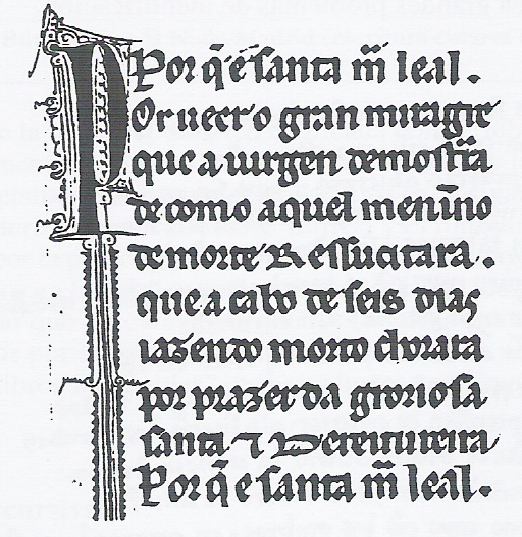 Por q̃ e santa m̃ leal.
POr ueer o gran miragre
que a uirgen demostr̃a
de como aquel menĩno
de morte Ressucitara.
que a cabo de seis dias
iazendo morto chorara
por prazer da groriosa
santa ⁊ Dereitureira
Por q̃ e santa m̃ leal.